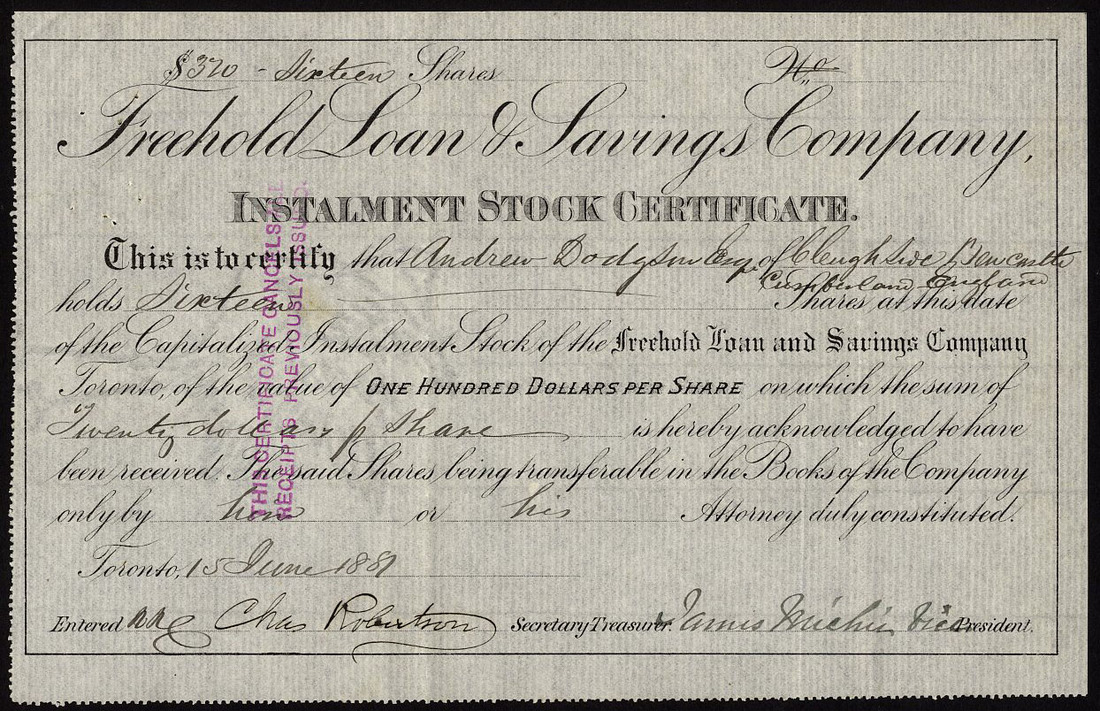 $320 - Sixteen Shares No.
Freehold Loan & Savings Company,
INSTALMENT STOCK CERTIFICATE.
This is to certify that Andrew Dodgson Esq of Cleughside Bewcastle
Cumberland England
holds Sixteen Shares at this date
of the Capitalized Instalment Stock of the Freehold Loan and Savings Company
Toronto, of the value of ONE HUNDRED DOLLARS PER SHARE on which the sum of
Twenty dollars p Share is hereby acknowledged to have
been received. The said Shares being transferable in the Books of the Company
only by him or his Attorney duly constituted.
Toronto, 15 June 1881
Entered Chas Robertson Secretary Treasurer. James Michie Vice President.
THIS CERTIFICATE CANCELS
RECEIPTS PREVIOUSLY ISSUED.